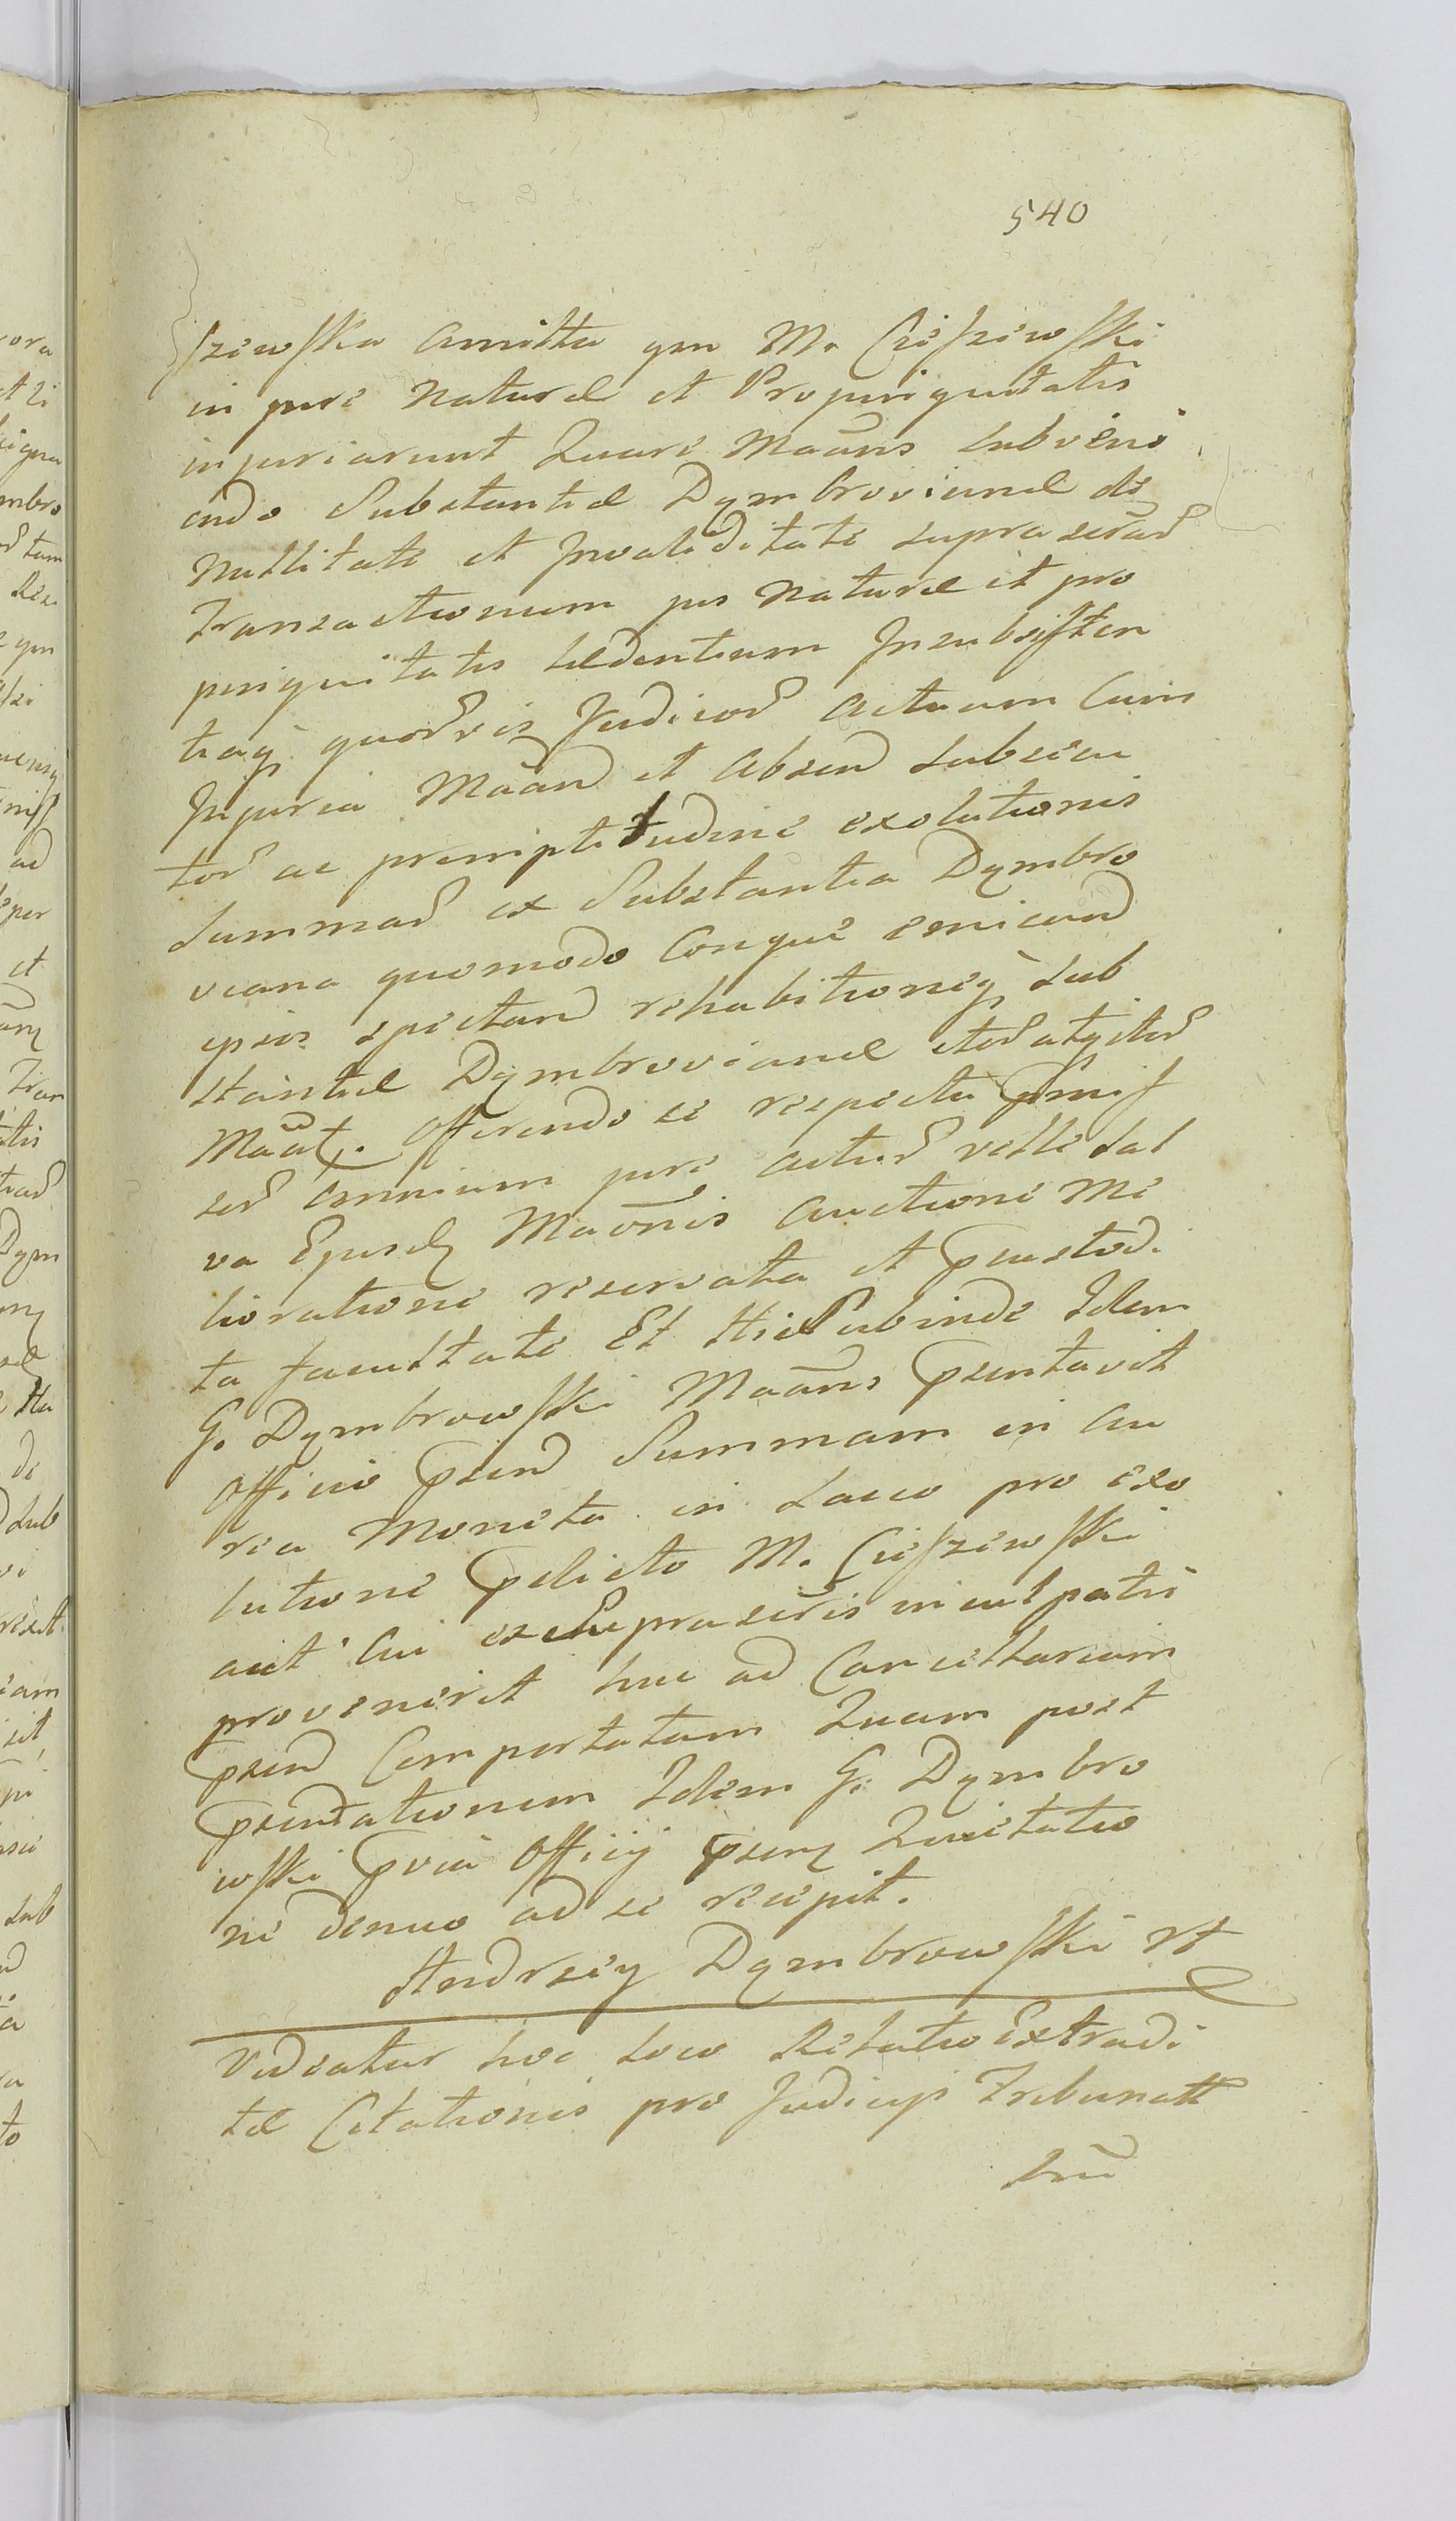 540
szewska Amitta qm M. Cieszewski
in jure Naturæ et Propinquitatis
injuriarunt Quare Maāns subveni
endo Substantiæ Dymbrovianæ de
Nullitate et Invaliditate suprascrār
Transactionum jus Naturæ et pro
pinquitatis lædentium Insubsisten
tiaq; quorvis Judicior Actuum Cum
Injuria Maān et Absen subsecu
tor ac promptitudine exolutionis
Summar ex Substantia Dymbro
viana quomodo Conque emicand
ipsis spectan rehabitioneq; Sub
stantiæ Dymbrovianæ
Maāt. Offerendo se respectu pmiss
sor omnium jure acturū velle Sal
va Ejusd Maōnis Auctione Me
lioratione reservata et pcustodi
ta facultate Et Hic Subinde Idem
G. Dymbrowski Maāns psentavit
Officio psen Summam in Au
rea Moneta in Sacco pro exo
lutione pdicto M. Cieszewski
aut Cui ex Suprascris inculpatis
provenerit huc ad Cancellariam
psen Comportatam Quam post
psentationem Idem G. Dymbro
wski pvia Officij psen Quietatio
ne denuo ad se recepit.
Andrzey Dymbrowski
Videatur hoc loco Relatio Extradi
tæ Citationis pro Judicijs Tribunali